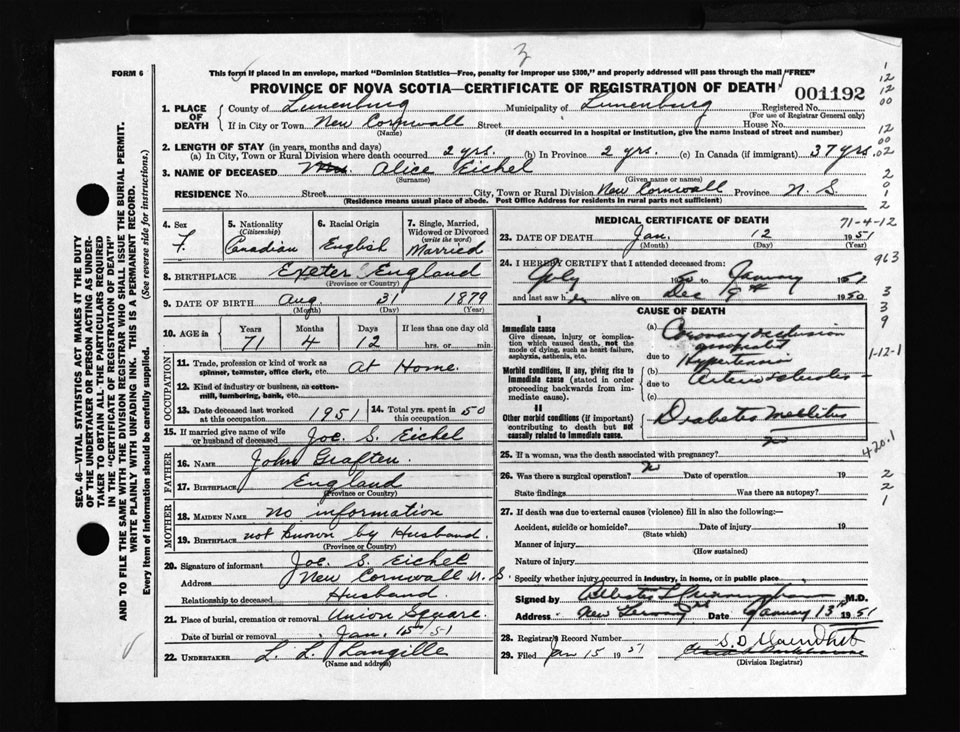 3
FORM 6
This form if placed in an envelope, marked "Dominion Statistics—Free, penalty for improper use $300," and properly addressed will pass through the mail "FREE"
PROVINCE OF NOVA SCOTIA—CERTIFICATE OF REGISTRATION OF DEATH
001192
1. PLACE OF DEATH
County of Lunenburg Municipality of Lunenburg Registered No.
(For use of Registrar General only)
If in City or Town New Cornwall Street House No.
(Name) (If death occurred in a hospital or institution, give the name instead of street and number)
2. LENGTH OF STAY (in years, months and days)
(a) In City, Town or Rural Division where death occurred 2 yrs. (b) In Province 2 yrs. (c) In Canada (if immigrant) 37 yrs.
3. NAME OF DECEASED Mrs. Alice Eichel
(Surname) (Given name or names)
RESIDENCE No. Street City, Town or Rural Division New Cornwall Province N. S
(Residence means usual place of abode. Post Office Address for residents in rural parts not sufficient)
4. Sex F.
5. Nationality (Citizenship) Canadian
6. Racial Origin English
7. Single, Married, Widowed or Divorced (write the word) Married
8. BIRTHPLACE Exeter England
(Province or Country)
9. DATE OF BIRTH Aug 31 1879
(Month) (Day) (Year)
10. AGE in Years 71 Months 4 Days 12 If less than one day old hrs. or min.
OCCUPATION
11. Trade, profession or kind of work as spinner, teamster, office clerk, etc. At Home.
12. Kind of industry or business, as cotton-mill, lumbering, bank, etc.
13. Date deceased last worked at this occupation 1951 14. Total yrs. spent in this occupation 50
15. If married give name of wife or husband of deceased Joe S. Eichel
FATHER
16. NAME John Graften.
17. BIRTHPLACE England
(Province or Country)
MOTHER
18. MAIDEN NAME No information
19. BIRTHPLACE not known by Husband.
(Province or Country)
20. Signature of informant Joe S. Eichel
Address New Cornwall N. S.
Relationship to deceased Husband.
21. Place of burial, cremation or removal Union Square.
Date of burial or removal Jan. 15th 51
22. UNDERTAKER L. L. Langille
(Name and address)
MEDICAL CERTIFICATE OF DEATH
71-4-12
23. DATE OF DEATH Jan. 12 1951
(Month) (Day) (Year)
24. I HEREBY CERTIFY that I attended deceased from:
July 1950 to January 1951
and last saw her alive on Dec 9th 1950
CAUSE OF DEATH
I
Immediate cause
Give disease, injury or complication which caused death, not the mode of dying, such as heart failure, asphyxia, asthenia, etc.
(a) Coronary occlusion
due to
Morbid conditions, if any, giving rise to immediate cause (stated in order proceeding backwards from immediate cause).
(b) Hypertension
due to Arteriosclerosis
(c)
II
Other morbid conditions (if important) contributing to death but not causally related to immediate cause.
Diabetes Mellitus
25. If a woman, was the death associated with pregnancy? no
26. Was there a surgical operation? no Date of operation 19
State findings Was there an autopsy?
27. If death was due to external causes (violence) fill in also the following:—
Accident, suicide or homicide? Date of injury 19
(State which)
Manner of injury
(How sustained)
Nature of injury
Specify whether injury occurred in industry, in home, or in public place
Signed by Cunningham M.D.
Address New Germany Date January 13th 1951
28. Registrar's Record Number
29. Filed Jan 15 1951
(Division Registrar)
963
1-12-1
420.1
SEC. 46—VITAL STATISTICS ACT MAKES IT THE DUTY
OF THE UNDERTAKER OR PERSON ACTING AS UNDER-
TAKER TO OBTAIN ALL THE PARTICULARS REQUIRED
IN THE "CERTIFICATE OF REGISTRATION OF DEATH"
AND TO FILE THE SAME WITH THE DIVISION REGISTRAR WHO SHALL ISSUE THE BURIAL PERMIT.
WRITE PLAINLY WITH UNFADING INK. THIS IS A PERMANENT RECORD.
Every item of Information should be carefully supplied. (See reverse side for instructions.)